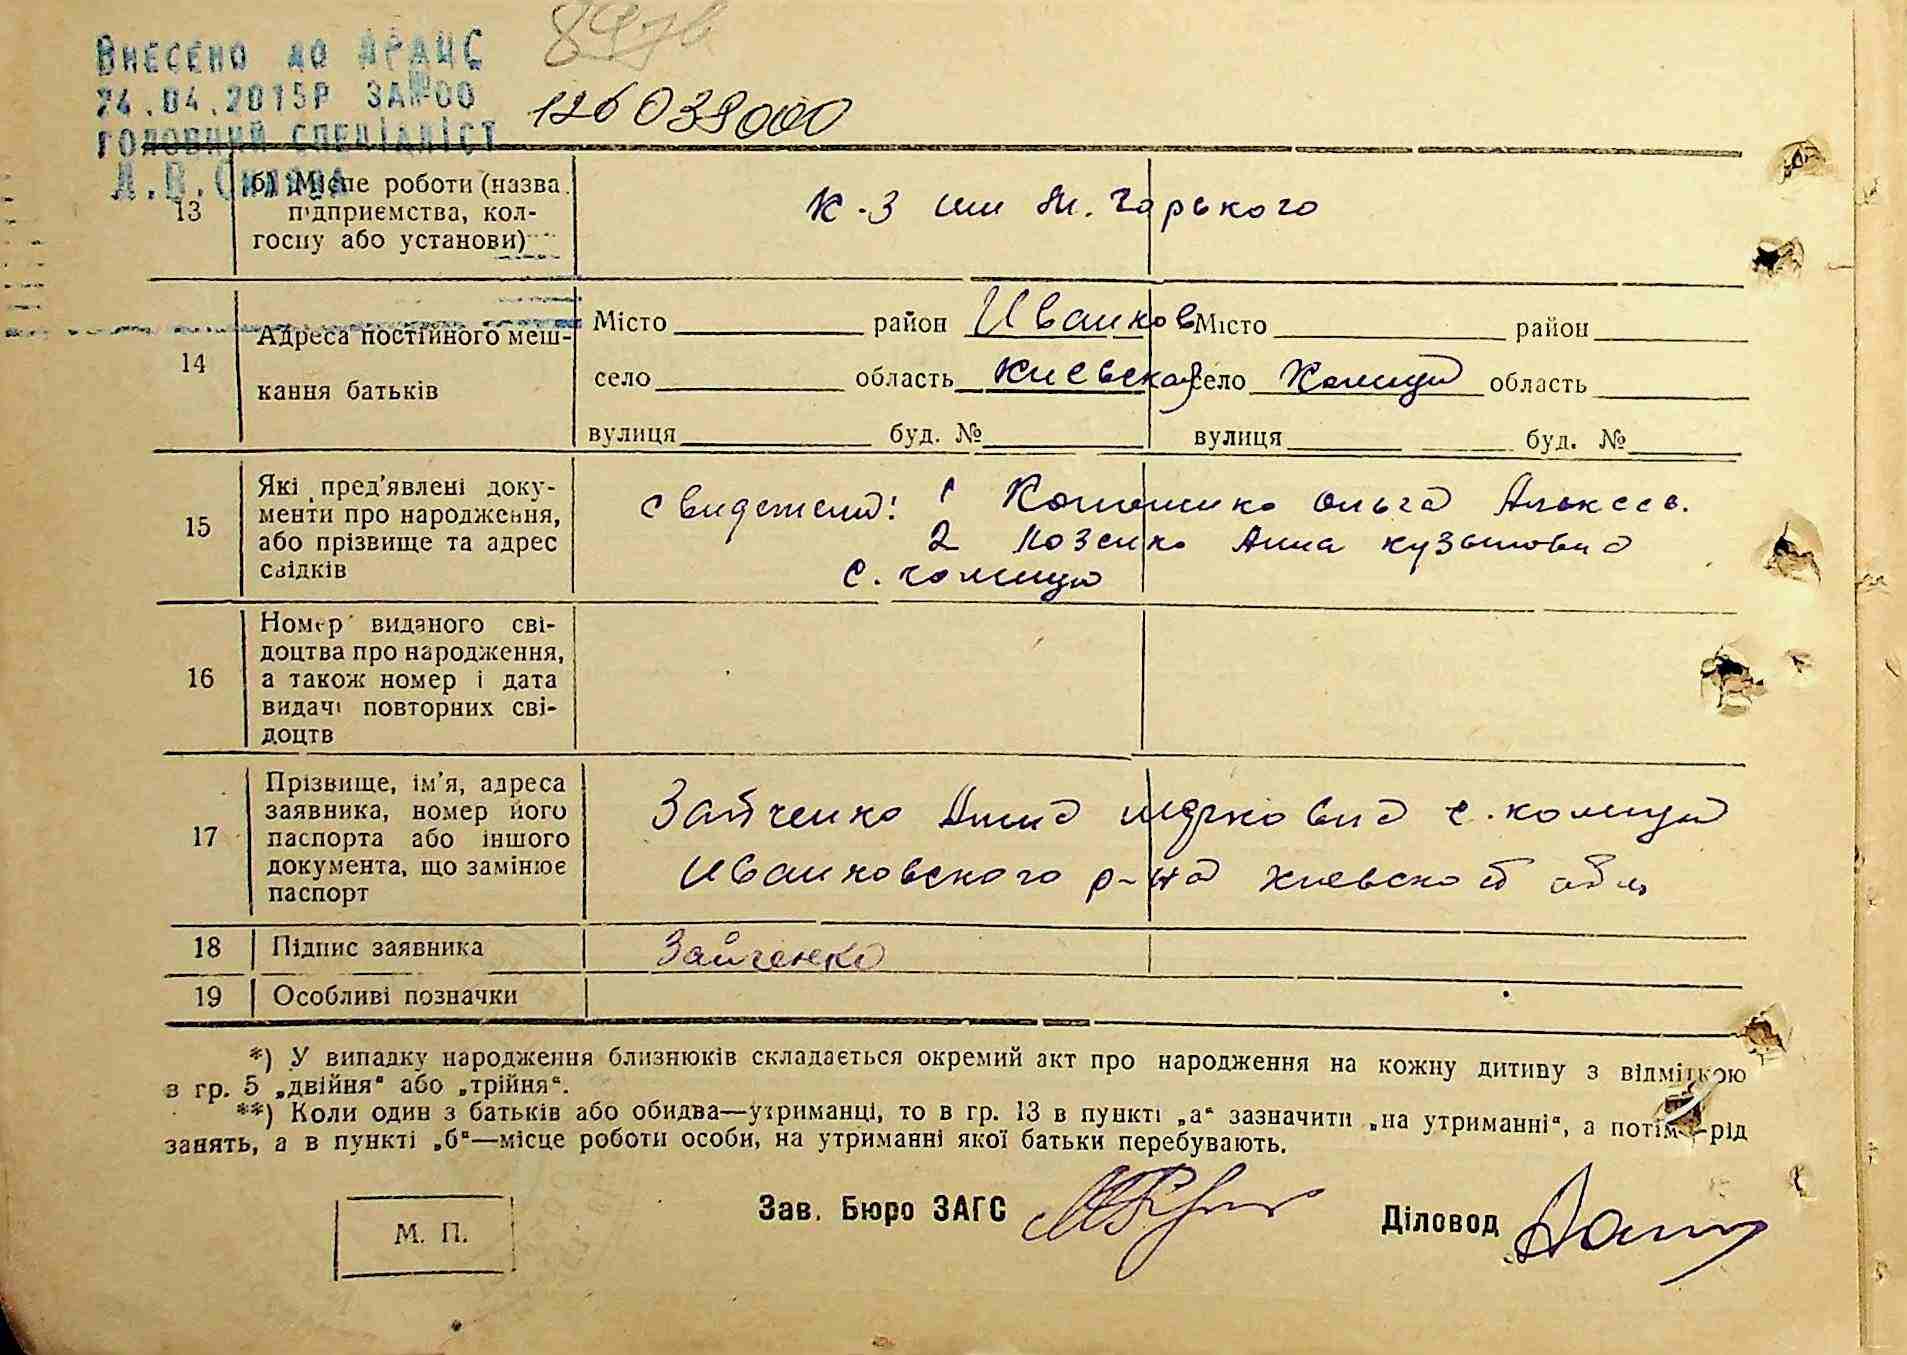 Внесено до ДРАЦС
24.04.2015р за №00
головний спеціаліст
126038000
13
б) Місце роботи (назва
підприємства, кол-
госпу або установи)
к-з им М. Горького
14
Адреса постійного меш-
кання батьків
Місто район Иванков Місто район
село область Киевская село Коленцы область
вулиця буд. № вулиця буд. №
15
Які пред'явлені доку-
менти про народження,
або прізвище та адрес
свідків
Ольга Алексеев.
2 Анна Кузьмовна
с.
16
Номер виданого сві-
доцтва про народження,
а також номер і дата
видачі повторних сві-
доцтв
17
Прізвище, ім'я, адреса
заявника, номер його
паспорта або іншого
документа, що замінює
паспорт
Зайченко с.
Иванковского р-на Киевской обл
18 Підпис заявника Зайченко
19 Особливі позначки
*) У випадку народження близнюків складається окремий акт про народження на кожну дитину з відміткою
в гр. 5 „двійня“ або „трійня“.
**) Коли один з батьків або обидва—утриманці, то в гр. 13 в пункті „а“ зазначити „на утриманні“, а потім—рід
занять, а в пункті „б“—місце роботи особи, на утриманні якої батьки перебувають.
М. П.
Зав. Бюро ЗАГС
Діловод